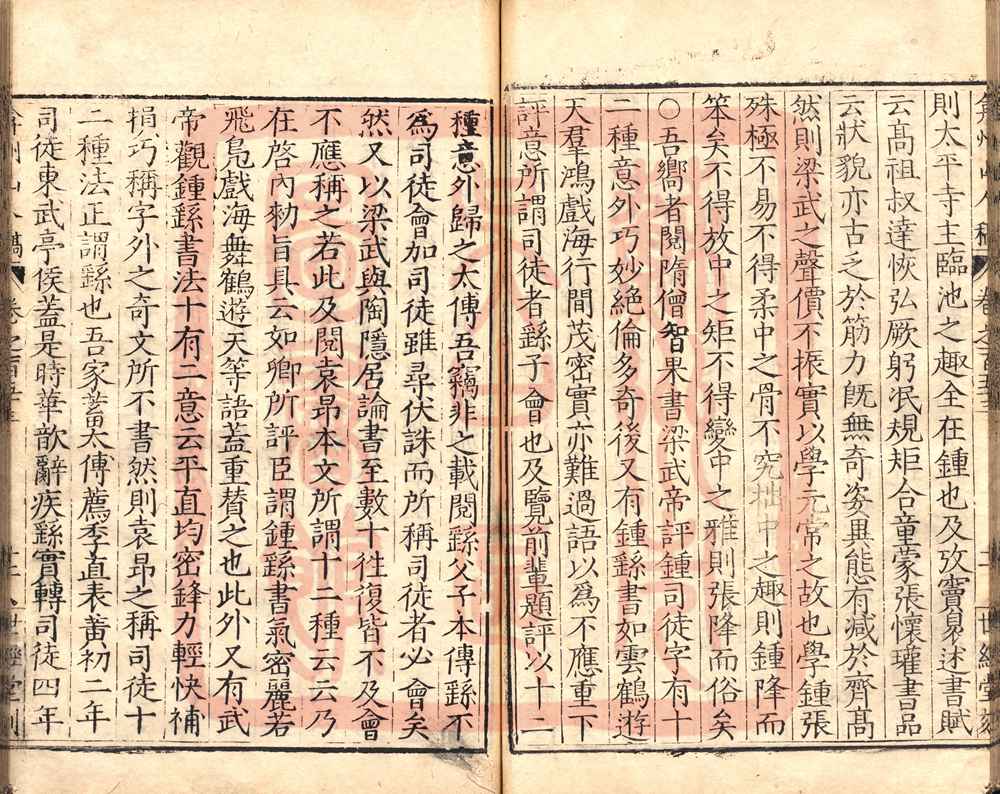 弇州山人稿 卷之一百五十三 十一 世經堂刻
則太平寺主臨池之趣全在鍾也及攷竇臮述書賦
云高祖叔達恢弘厥躬泯規矩合童蒙張懷瓘書品
云狀貌亦古乏於筋力旣無奇姿異態有減於齊髙
然則梁武之聲價不振實以學元常之故也學鍾張
殊極不易不得柔中之骨不究拙中之趣則鍾降而
笨矣不得放中之矩不得變中之雅則張降而俗矣
○吾嚮者閱隋僧智果書梁武帝評鍾司徒字有十
二種意外巧妙絶倫多奇後又有鍾繇書如雲鶴遊
天羣鴻戲海行間茂密實亦難過語以爲不應重下
評意所謂司徒者繇子會也及覽前輩題評以十二
種意外歸之太傅吾竊非之載閱繇父子本傳繇不
爲司徒會加司徒雖尋伏誅而所稱司徒者必會矣
然又以梁武與陶隱居論書至數十徃復皆不及會
不應稱之若此及閱袁昻本文所謂十二種云云乃
在啓內勑旨具云如卿所評臣謂鍾繇書氣密麗若
飛鳬戲海舞鶴遊天等語蓋重賛之也此外又有武
帝觀鍾繇書法十有二意云平直均密鋒力輕快補
損巧稱字外之奇文所不書然則袁昻之稱司徒十
二種法正謂繇也吾家蓄太傅薦季直表黃初二年
司徒東武亭侯蓋是時華歆辭疾繇實轉司徒四年
弇州山人稿 卷之一百五十三 十二 世經堂刻